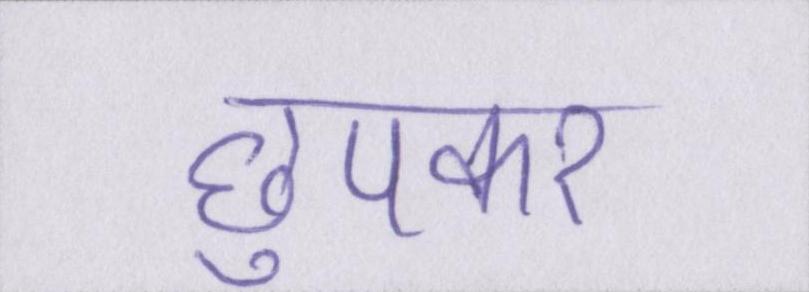 छुपकर